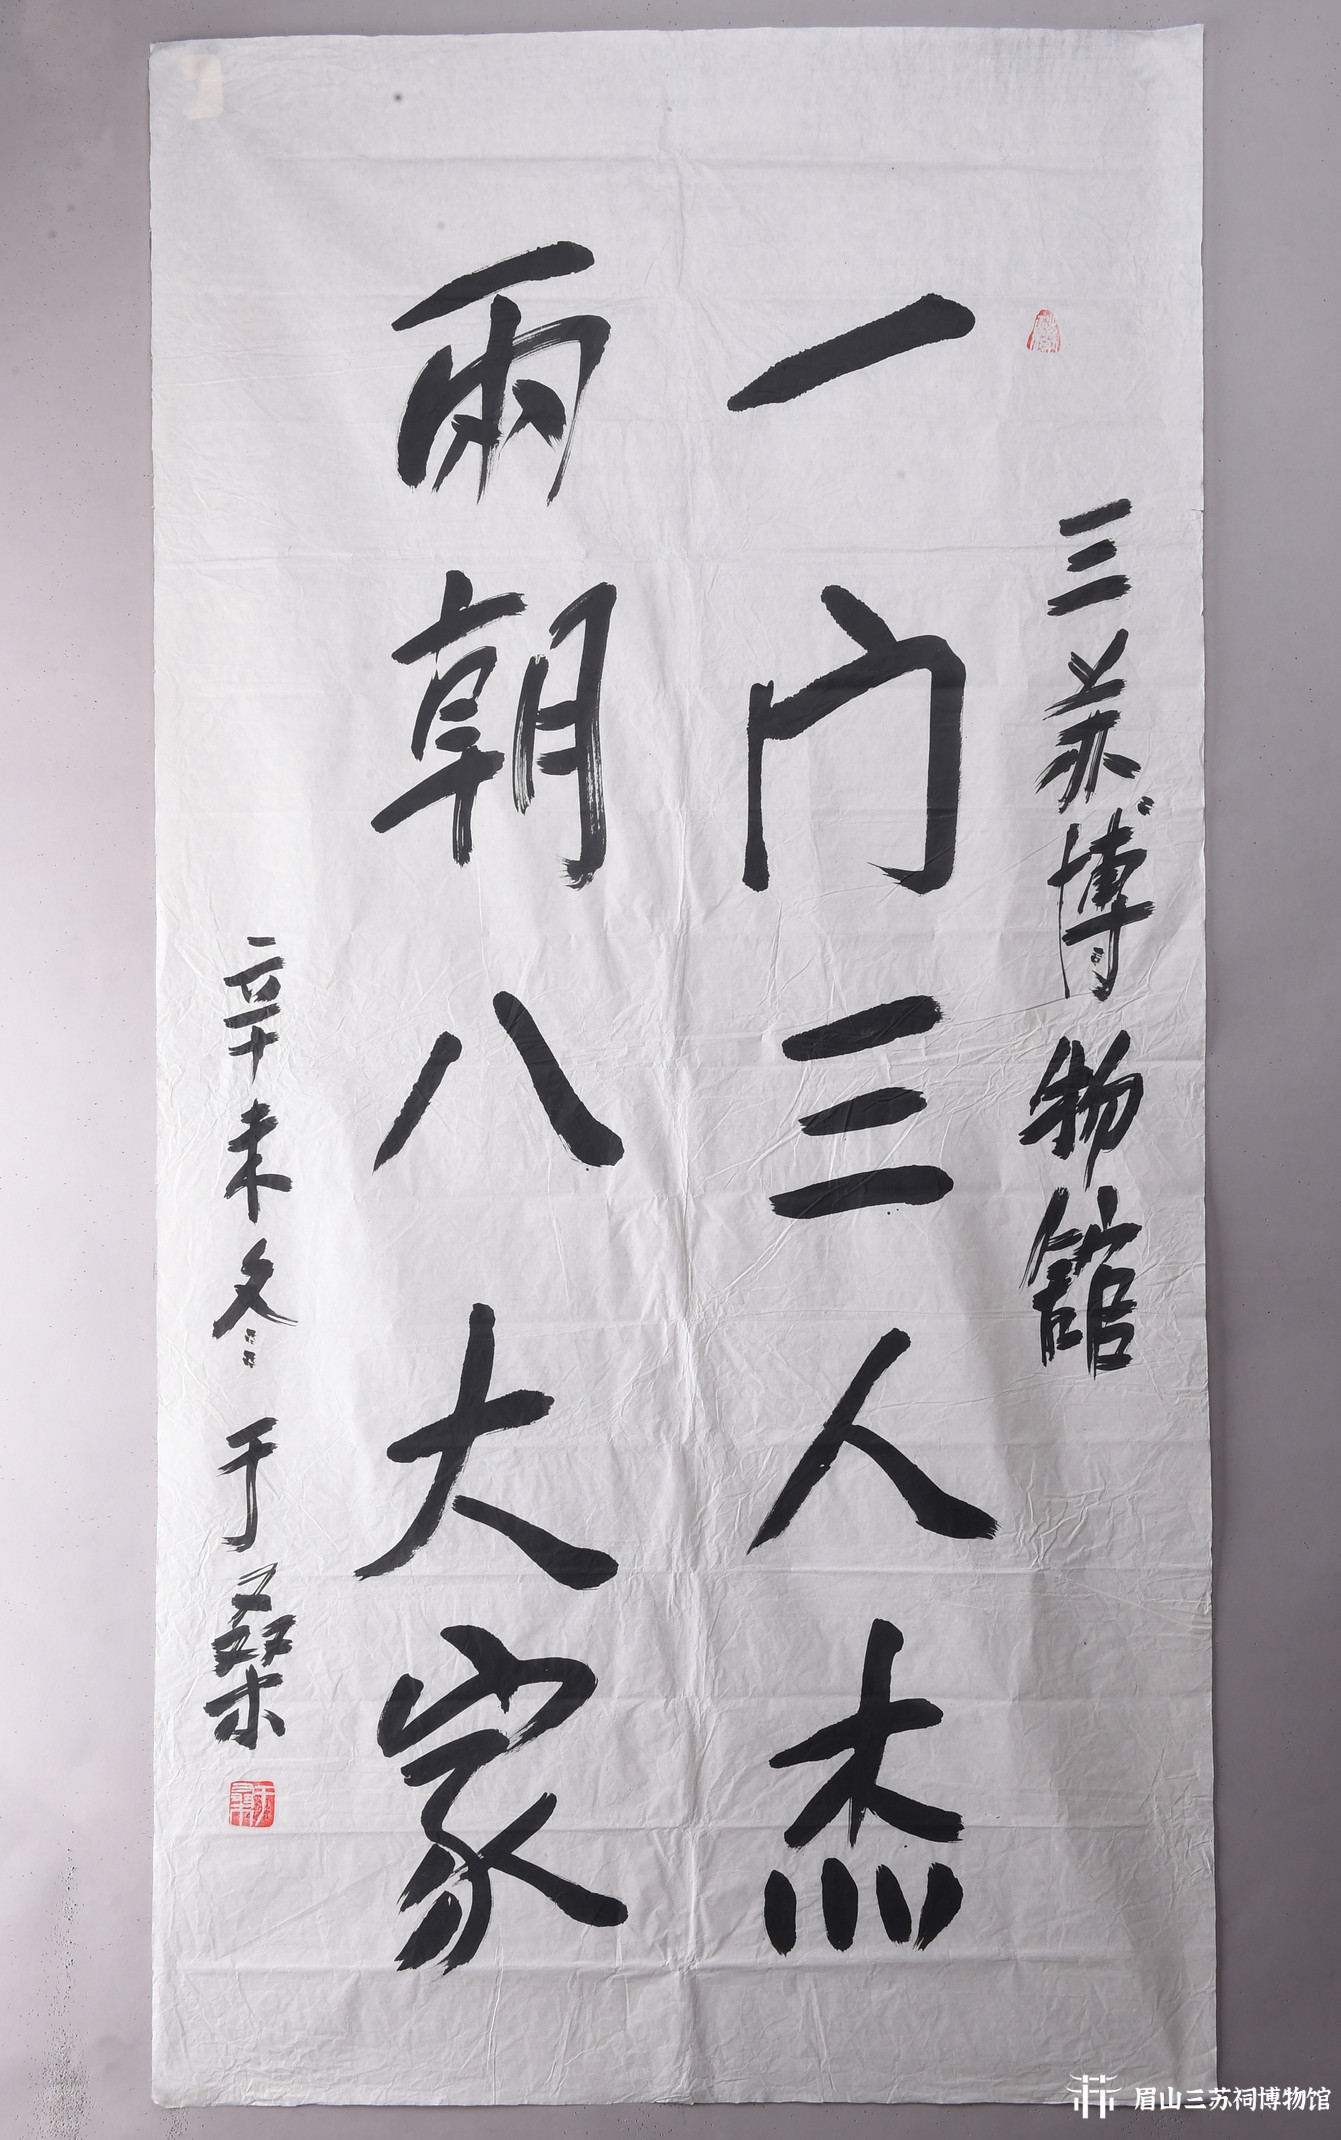 三苏博物馆
一门三人杰
兩朝八大家
辛未冬 于桑
眉山三苏祠博物馆